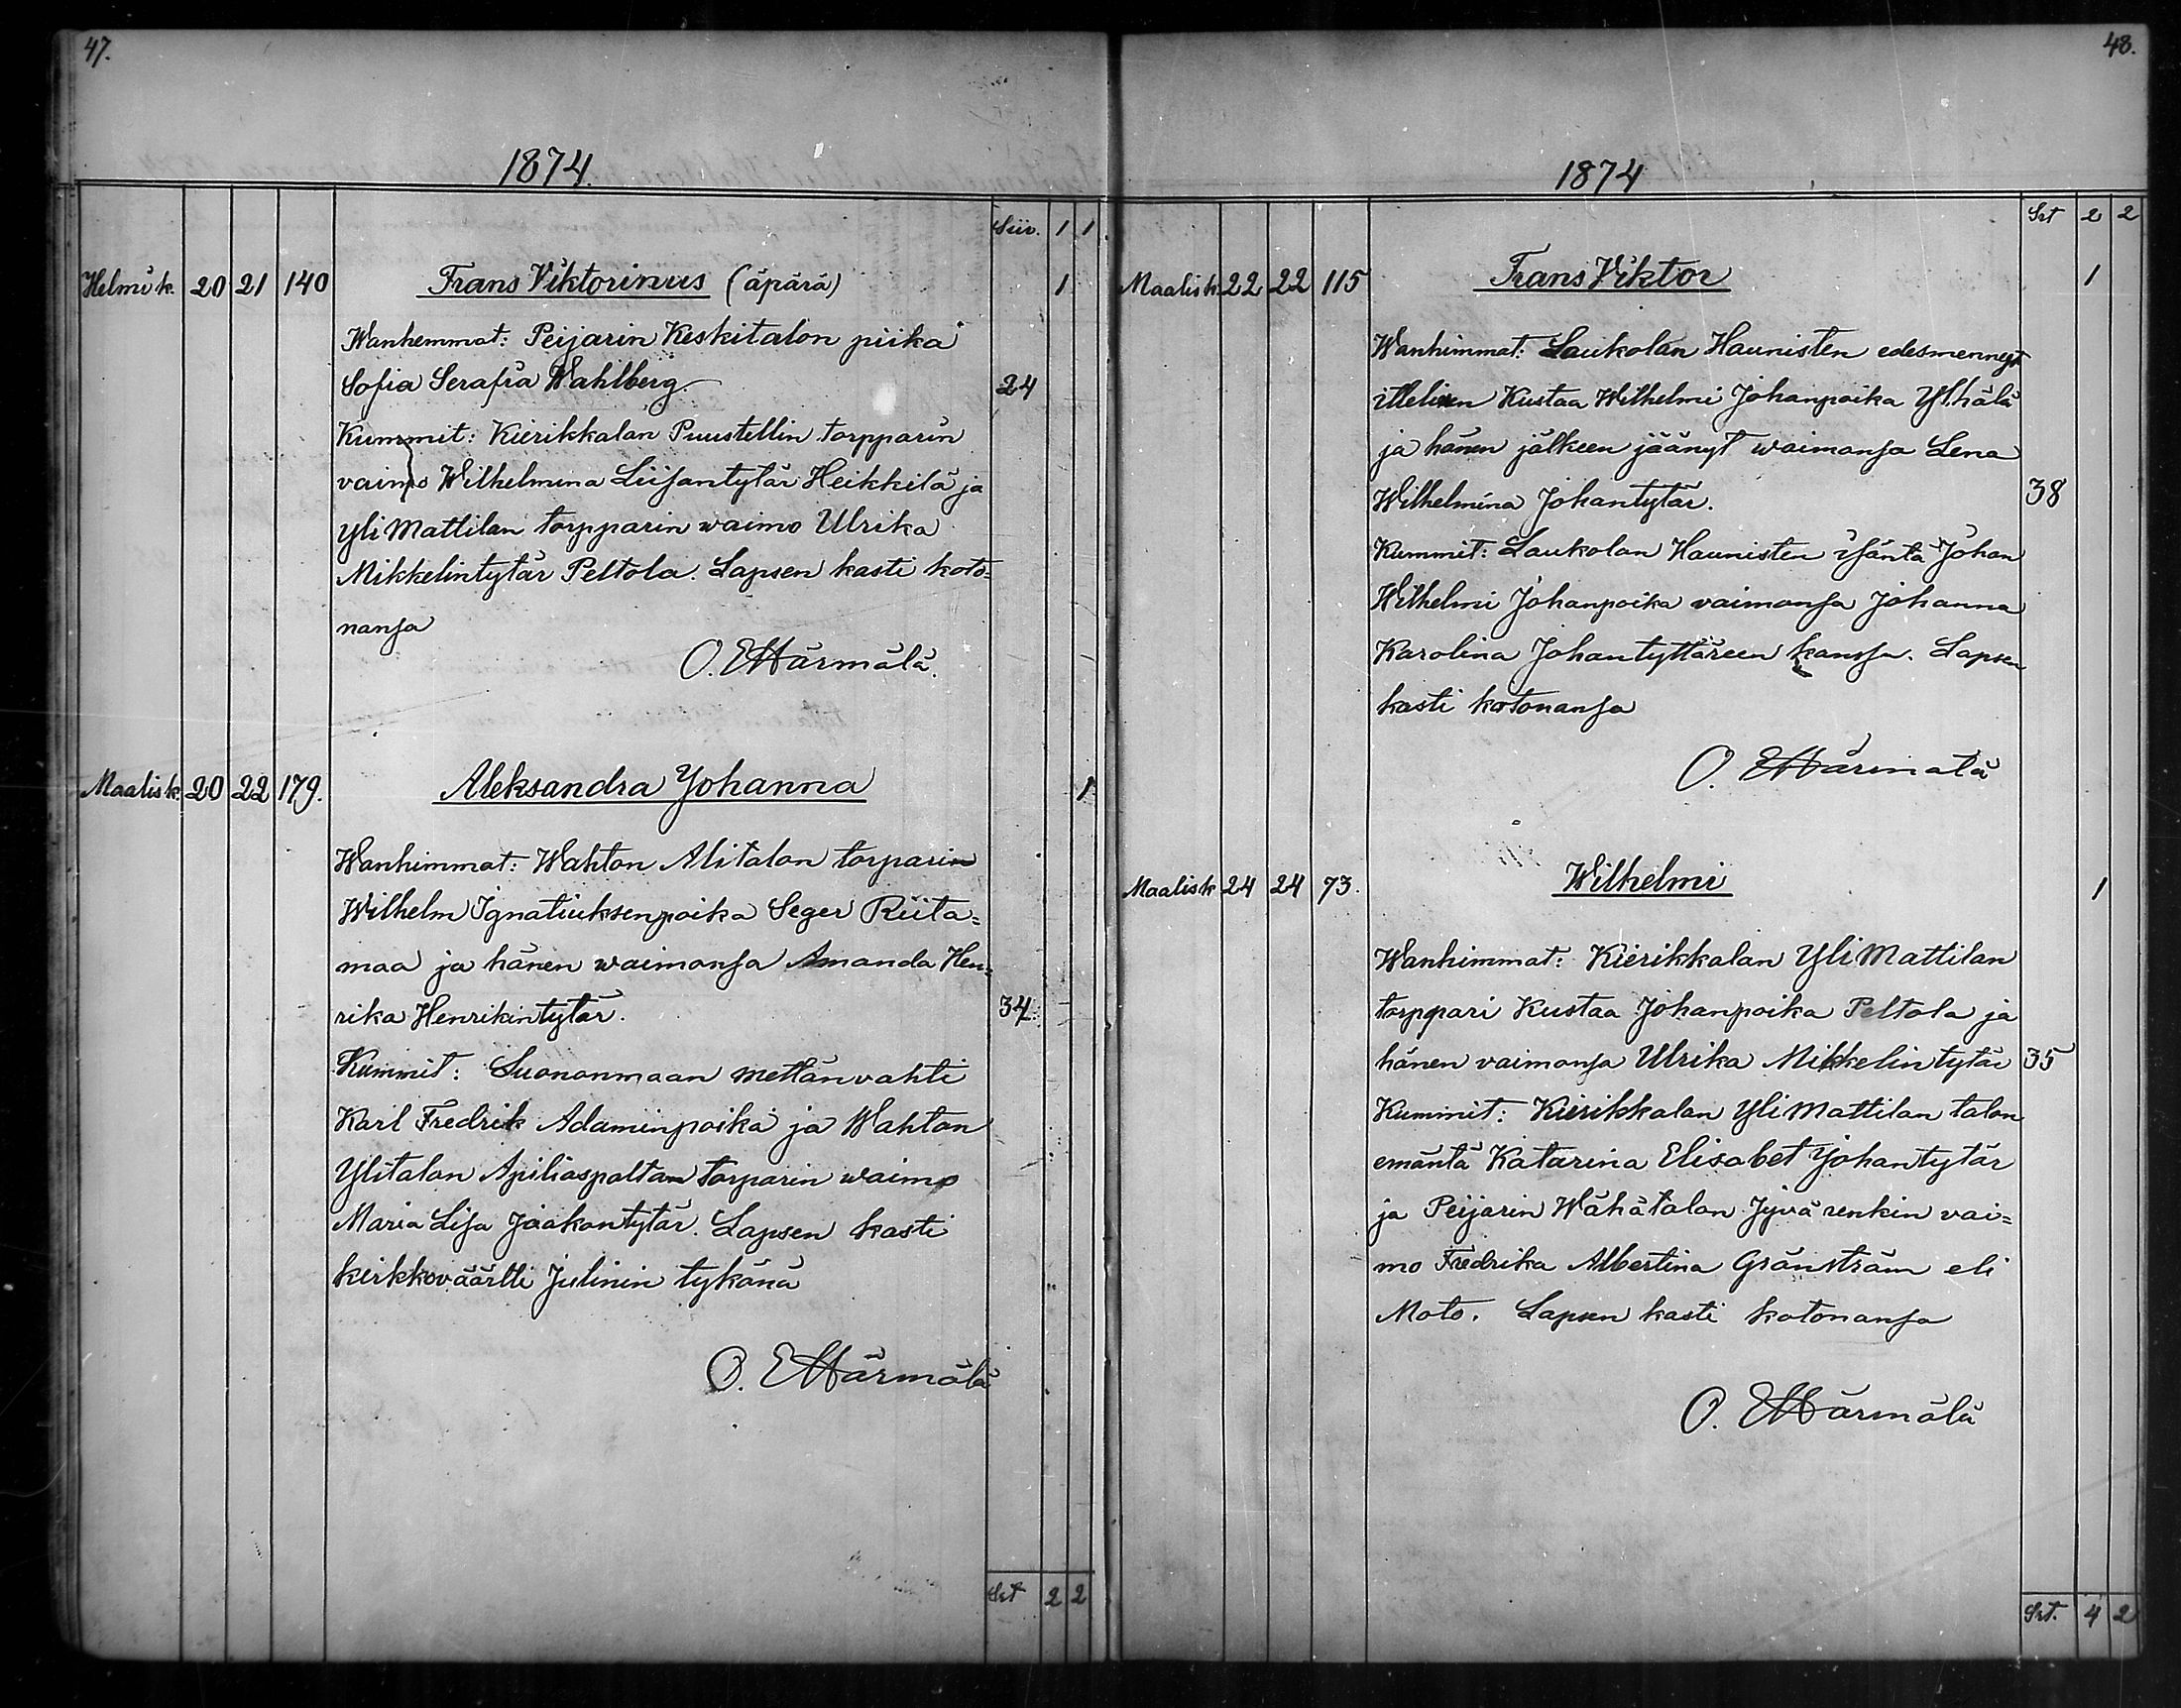 47.
1874.
Siiv. 1 1
Helmik. 20 21 140 Frans Viktorinus (äpärä) 1
Wanhemmat: Peijarin Keskitalon piika
Sofia Serafia Wahlberg. 24
Kummit: Kierikkalan Puustellin torpparin
vaimo Wilhelmina Liisantytär Heikkilä ja
Yli Mattilan torpparin waimo Ulrika
Mikkelintytär Peltola. Lapsen kasti koto=
nansa
O. E Härmälä.
Maalisk. 20 22 179. Aleksandra Johanna 1
Wanhimmat: Wahton Alitalon torparin
Wilhelm Ignatiuksenpoika Seger Riita=
maa ja hänen waimonsa Amanda Hen=
rika Henrikintytär. 34.
Kummit: Suononmaan mettänvahti
Karl Fredrik Adaminpoika ja Wahton
Ylitalon torparin waimo
Maria Lisa Jaakontytär. Lapsen kasti
kirkkoväärtti Julinin tykönä
O. E Härmälä
Srt 2 2
48.
1874
Srt 2 2
Maalisk. 22 22 115 Frans Viktor 1
Wanhimmat: Laukolan Haunisten edesmennyt
itellinen Kustaa Wilhelmi Johanpoika Ylhälä
ja hänen jälkeen jäänyt waimonsa Lena
Wilhelmina Johantytär. 38
Kummit: Laukolan Haunisten isäntä Johan
Wilhelmi Johanpoika vaimonsa Johanna
Karolina Johantyttäreen kanssa. Lapsen
kasti kotonansa
O. E Härmälä
Maalisk 24 24 73. Wilhelmi 1
Wanhimmat: Kierikkalan Yli Mattilan
torppari Kustaa Johanpoika Peltola ja
hänen vaimonsa Ulrika Mikkelintytär 35
Kummit: Kierikkalan Yli Mattilan talon
emäntä Katarina Elisabet Johantytär
ja Peijarin Wähätalon Jyvä renkin vai=
mo Fredrika Albertina Gränström eli
Moto. Lapsen kasti kotonansa
O. E Härmälä
Srt. 4 2